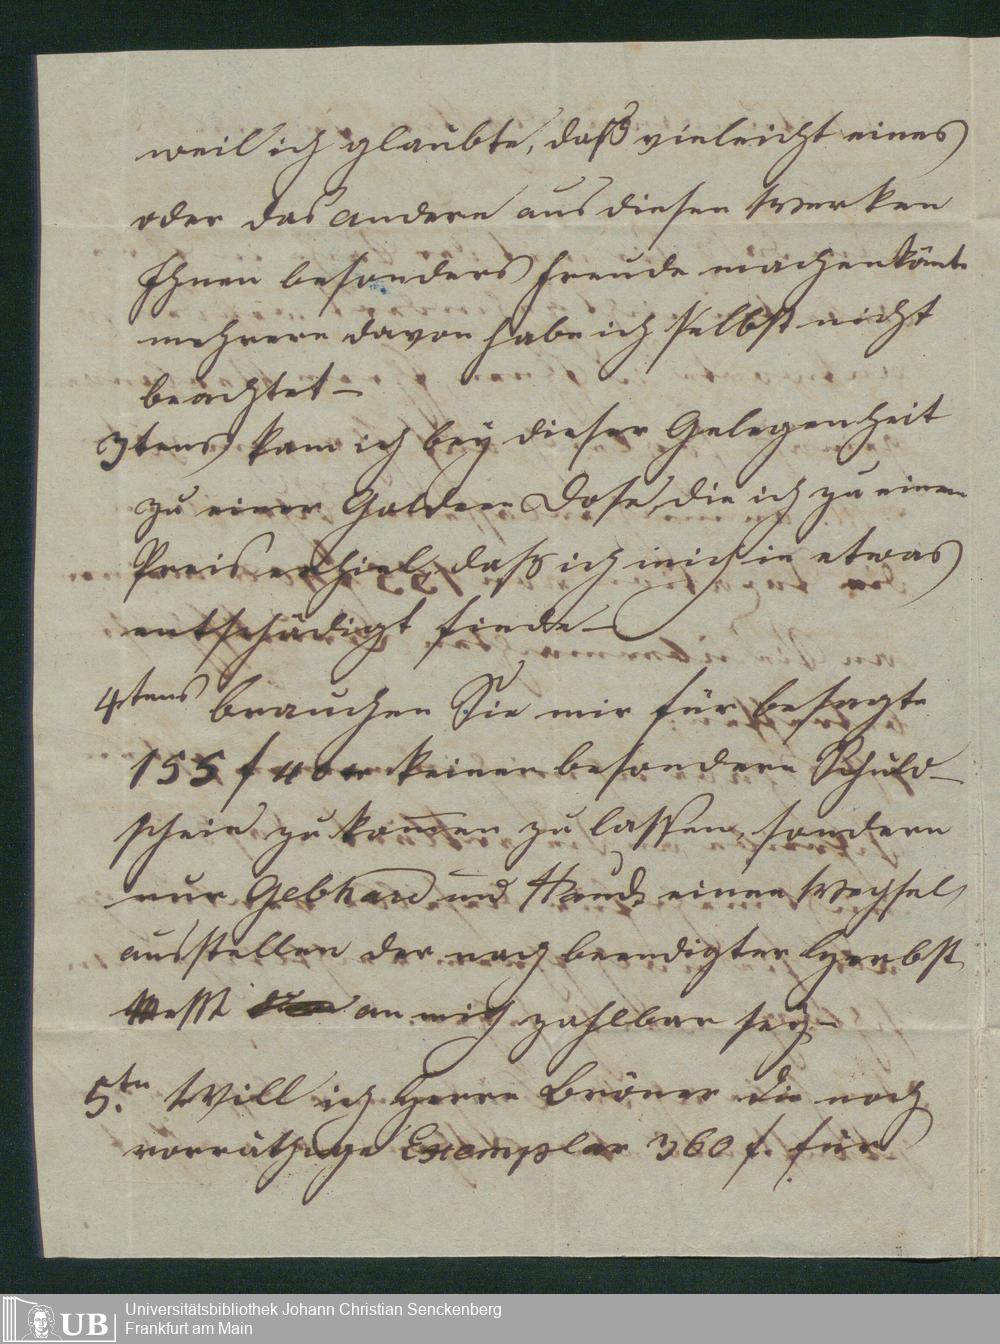 weil ich glaubte, daß vieleicht eines
oder das andere aus diesen Werken
Ihnen besonders Freude machen könte
mehrere davon habe ich selbst nicht
beachtet –
3tens kam ich bey dieser Gelegenheit
zu einer Goldnen Dose, die ich zu einem
Preis erhielt, daß ich mich in etwas
entschädigt finde –
4tens brauchen Sie mir für besagte
155 f 40 xr keinen besondern Schuld-
schein zu kom̅en zu lassen, sondern
nur Gebhard und einen Wechsel
ausstellen der nach beendigter Herbst
Messe an mich zahlbar sey –
5.tn Will ich Herrn Bröner die noch
vorräthige Exemplar 360 f. für
Universitätsbibliothek Johann Christian Senckenberg
Frankfurt am Main
UB